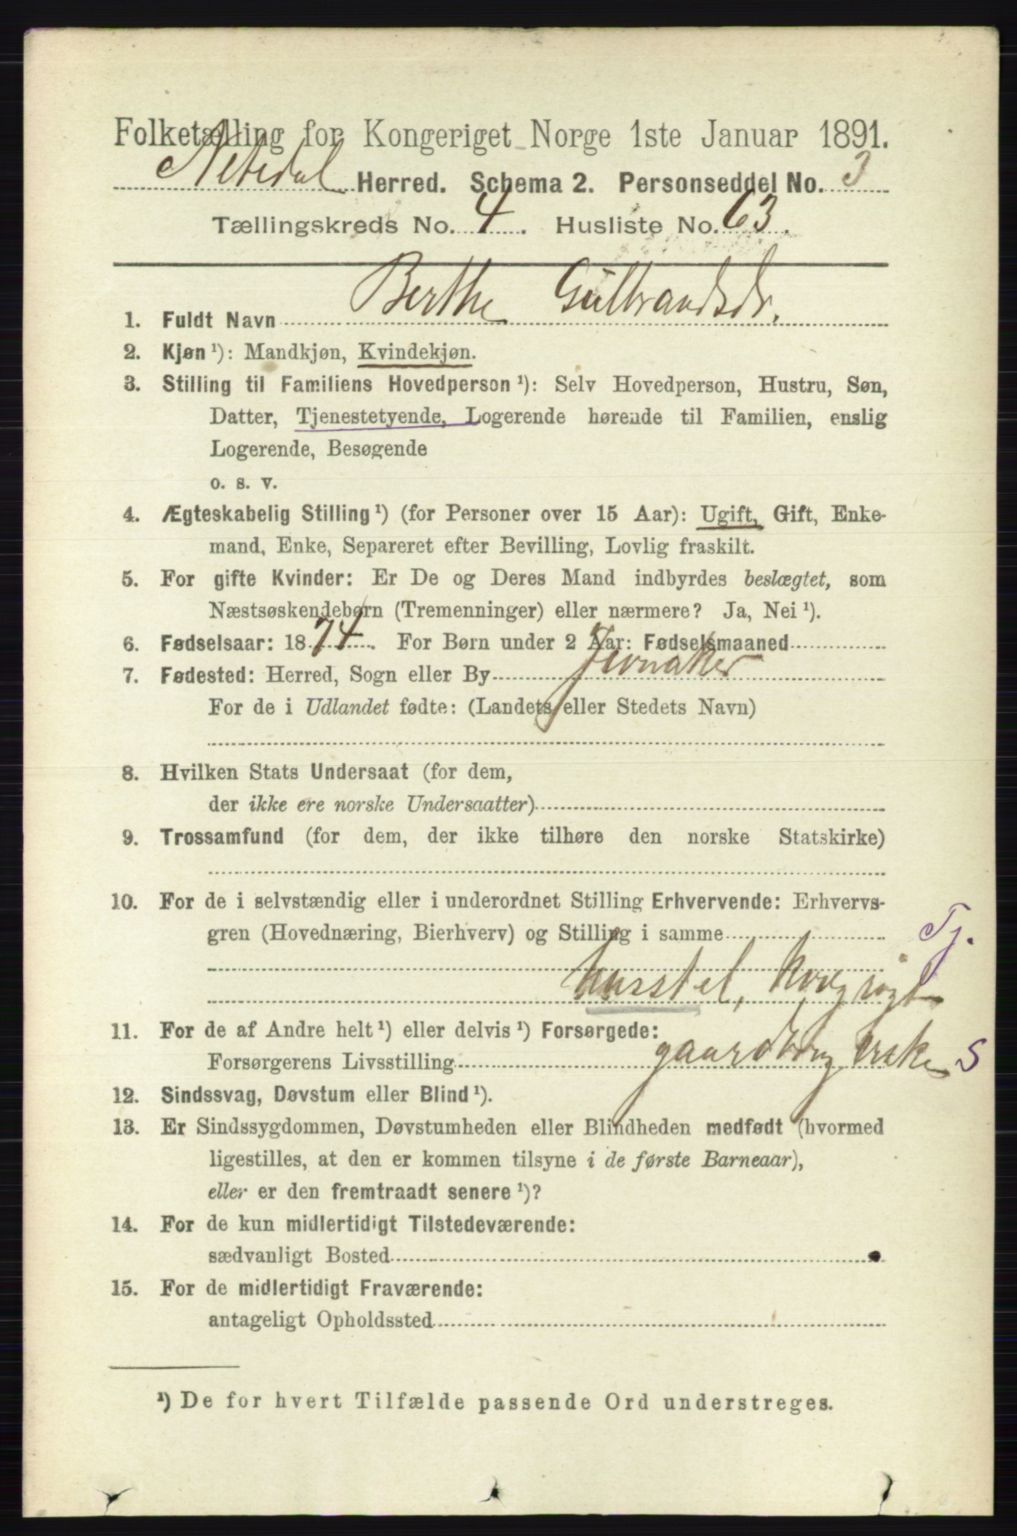 Folketælling for Kongeriget Norge 1ste Januar 1891.
Nitedal Herred. Schema 2. Personseddel No. 3
Tællingskreds No. 4. Husliste No. 63.
1. Fuldt Navn Berthe Gulbrandsdr.
2. Kjøn ¹): Mandkjøn, Kvindekjøn.
3. Stilling til Familiens Hovedperson ¹): Selv Hovedperson, Hustru, Søn,
Datter, Tjenestetyende, Logerende hørende til Familien, enslig
Logerende, Besøgende
o. s. v.
4. Ægteskabelig Stilling ¹) (for Personer over 15 Aar): Ugift, Gift, Enke-
mand, Enke, Separeret efter Bevilling, Lovlig fraskilt.
5. For gifte Kvinder: Er De og Deres Mand indbyrdes beslægtet, som
Næstsøskendebørn (Tremenninger) eller nærmere? Ja, Nei ¹).
6. Fødselsaar: 1874. For Børn under 2 Aar: Fødselsmaaned
7. Fødested: Herred, Sogn eller By Jevnaker
For de i Udlandet fødte: (Landets eller Stedets Navn)
8. Hvilken Stats Undersaat (for dem,
der ikke ere norske Undersaatter)
9. Trossamfund (for dem, der ikke tilhøre den norske Statskirke)
10. For de i selvstændig eller i underordnet Stilling Erhvervende: Erhvervs-
gren (Hovednæring, Bierhverv) og Stilling i samme Tj.
husstel, kvægrøgt
11. For de af Andre helt ¹) eller delvis ¹) Forsørgede:
Forsørgerens Livsstilling gaardbrug S
12. Sindssvag, Døvstum eller Blind ¹).
13. Er Sindssygdommen, Døvstumheden eller Blindheden medfødt (hvormed
ligestilles, at den er kommen tilsyne i de første Barneaar),
eller er den fremtraadt senere ¹)?
14. For de kun midlertidigt Tilstedeværende:
sædvanligt Bosted
15. For de midlertidigt Fraværende:
antageligt Opholdssted
¹) De for hvert Tilfælde passende Ord understreges.